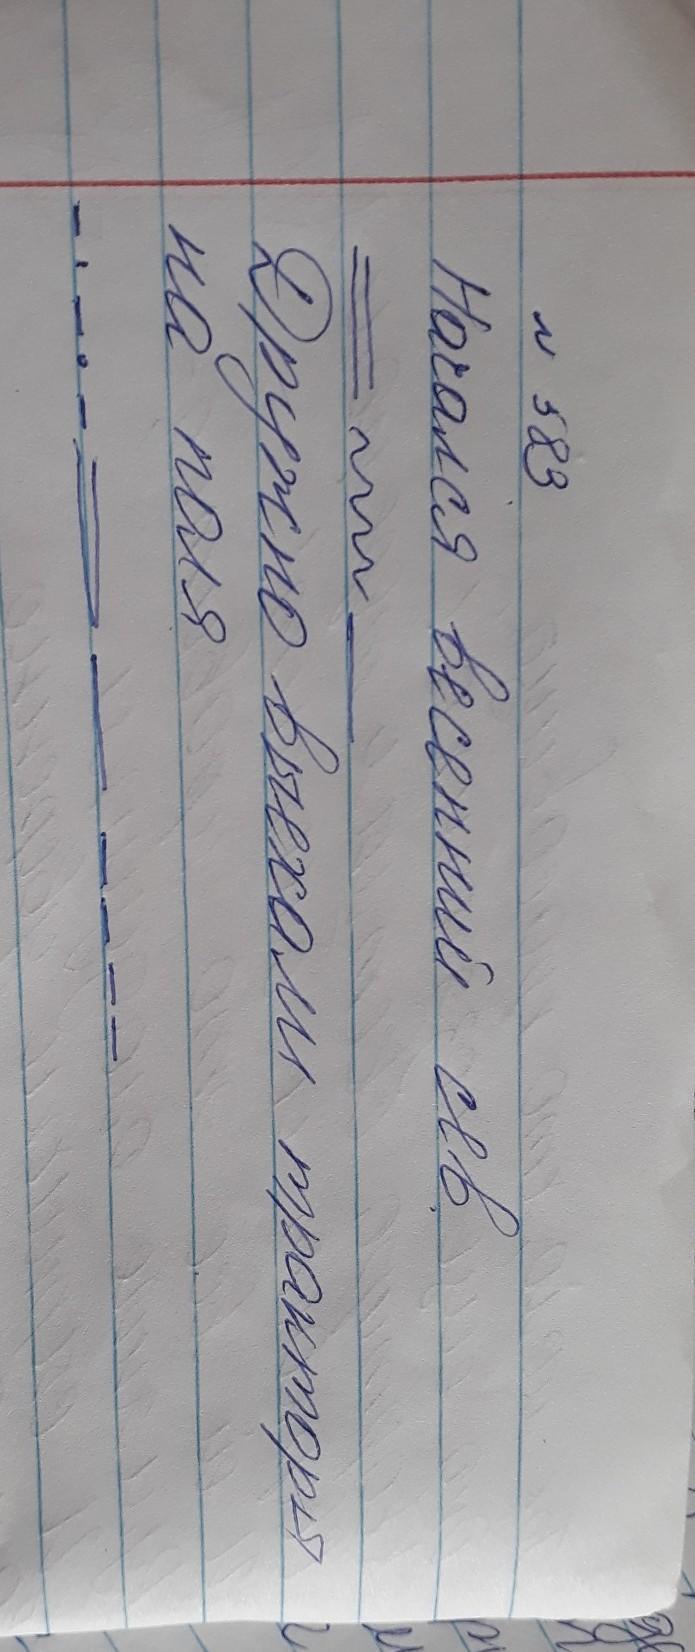 № 383
Начался весенний сев.
Дружно выехали тракторы
на поля